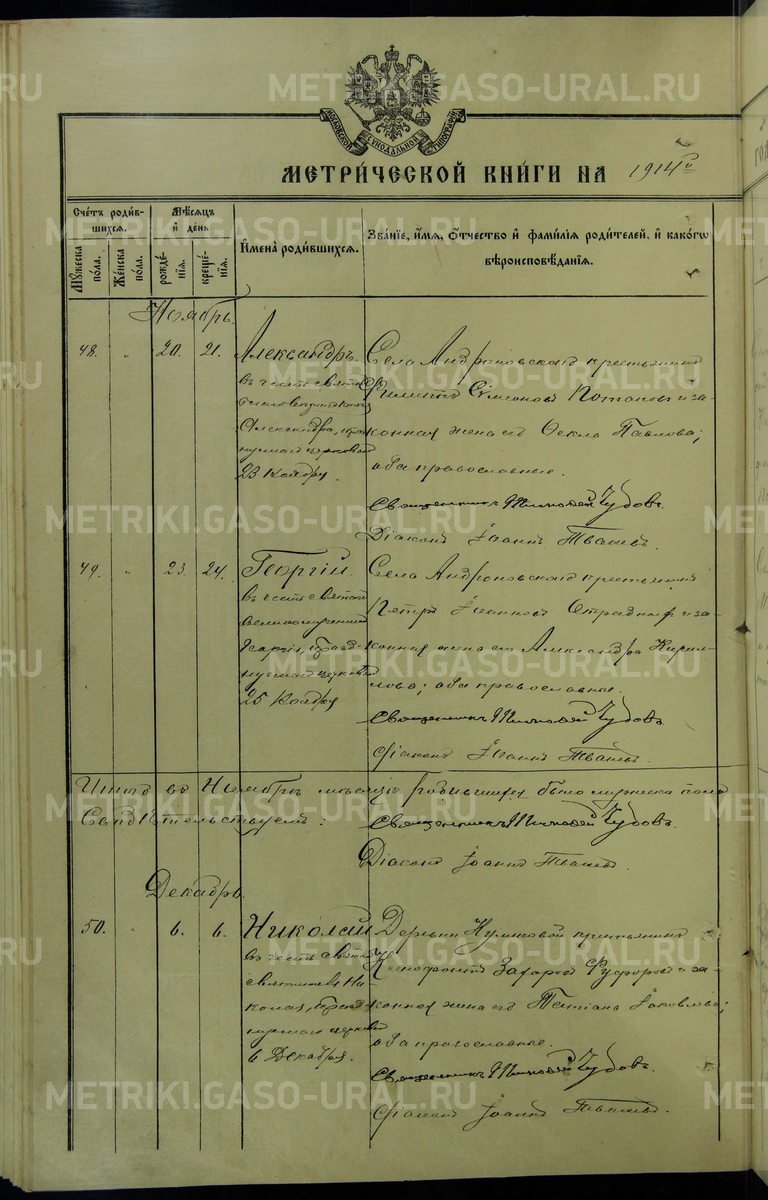 МОСКОВСКОЙ СУНОДАЛЬНОЙ ТИПОГРАФІИ
МЕТРИ́ЧЕСКОЙ КНИ́ГИ НА 1914 г.
Счетъ роди́вшихся.
Мужеска по́ла.
Же́нска по́ла.
Мѣсяцъ и день
рожде́нія.
креще́нія.
Имена̀ роди́вшихся.
Зва́ніе, и́мя, о́тчество и фами́лія роди́телей, и како́гѡ
вѣроисповѣ́данія.
Ноябрь.
48. " 20. 21. Александръ
въ честь святаго
благовѣрнаго князя
Александра, празднуемаго церковію
23 Ноября.
Села Андроновскаго крестьянинъ
Филиппъ Симоновъ Потаповъ и за-
конная жена его Өекла Павлова;
оба православные.
Священникъ Чудовъ.
Діаконъ Іоаннъ
49. " 23. 24. Георгій
въ честь святаго
великомученика
Георгія, празд-
нуемаго церковію
25 Ноября
Села Андроновскаго крестьянинъ
Петръ Іоанновъ и за-
конная жена его Александра Кирил-
лова; оба православные.
Священникъ Чудовъ
Діаконъ Іоаннъ
Итого въ Ноябрѣ мѣсяцѣ родившихся было мужеска пола
Свидѣтельствуемъ: Священникъ Чудовъ.
Діаконъ Іоаннъ
Декабрь.
50. " 6. 6. Николай
въ честь святаго
святителя Ни-
колая, празд-
нуемаго церковію
6 Декабря.
Деревни крестьянинъ
Ксенофонтъ Захаровъ и за-
конная жена его Татіана Іаковлева;
оба православные.
Священникъ Чудовъ.
Діаконъ Іоаннъ
METRIKI.GASO-URAL.RU